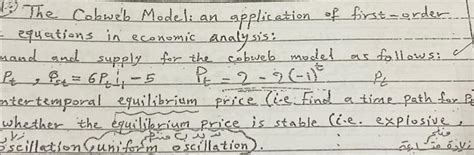 The Cobweb Model: an application of first-order
equations in economic analysis:
mand and supply for the cobweb model as follows:
Pt , Qst = 6Pt-1 - 5 Pt = 2 - 9(-1)^t Pt
ntertemporal equilibrium price (i.e. find a time path for P
whether the equilibrium price is stable (i.e. explosive,
oscillation (uniform oscillation).